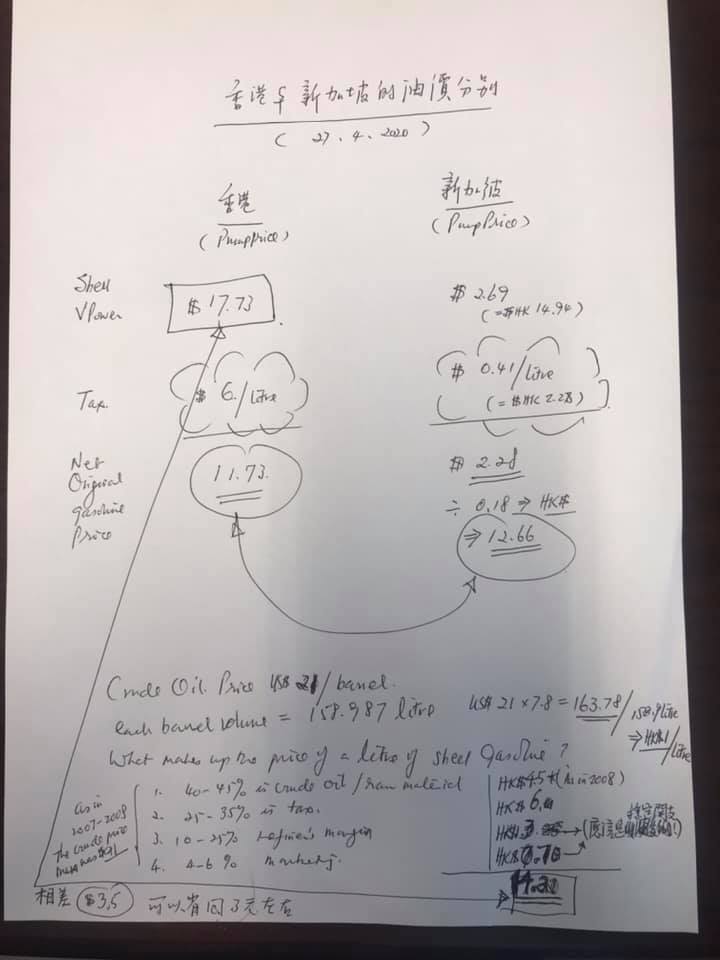 香港与新加坡的油價分别
( 27.4.2020 )
香港
(Pump price)
新加坡
(Pump Price)
Shell
VPower
$ 17.73
$ 2.69
(= $HK 14.94)
Tax.
$ 6./Litre
$ 0.41/Litre
(= $HK 2.28)
Net
Original
gasoline
Price
11.73
$ 2.28
÷ 0.18 ⇒ HK$
⇒ 12.66
Crude Oil Price US$ 21/barrel.
each barrel volume = 158.987 litre
US$ 21 × 7.8 = 163.78/158.9 Litre
⇒ HK$1/Litre
What makes up the price of a litre of shell gasoline?
as in
2007-2008
The crude price
1. 40-45% is crude oil/raw material
2. 25-35% is tax.
3. 10-25% refiner's margin
4. 4-6% marketing.
HK$4.5 (As in 2008)
HK$ 6.
HK$
HK$0.70
14.20
相差 $3.5 可以省回3元左右